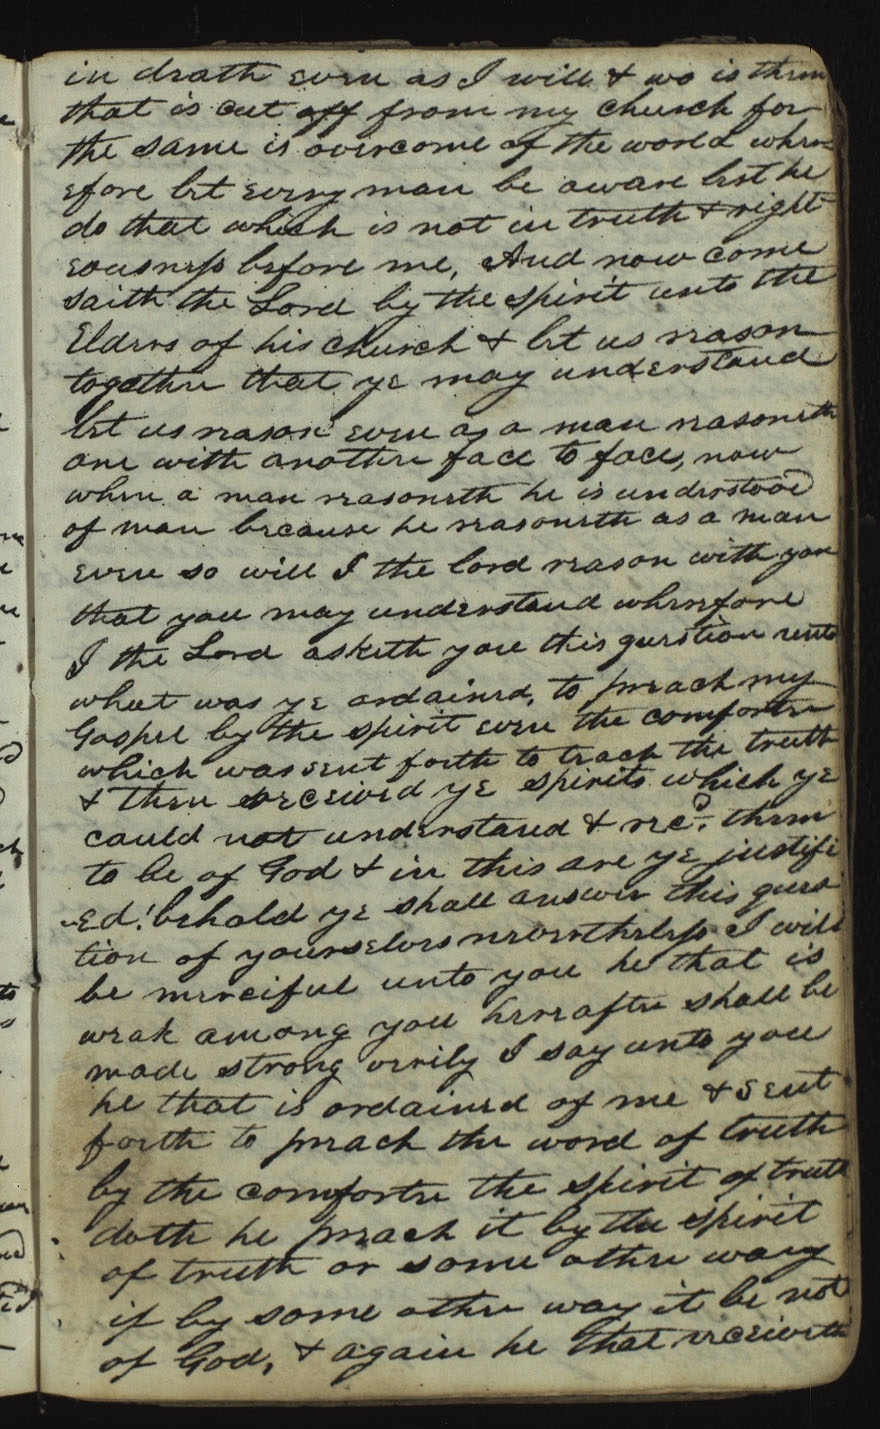 in death even as I will & wo is them
that is cut off from my church for
the same is overcome of the world wher
efore let every man be aware lest he
do that which is not in truth & right
eousness before me, And now come
saith the Lord by the spirit unto the
Elders of his church & let us reason
together that ye may understand
let us reason even as a man reasoneth
one with another face to face, now
when a man reasoneth he is understood
of man because he reasoneth as a man
even so will I the lord reason with you
that you may understand wherefore
I the Lord asketh you this question unto
what was ye ordained, to preach my
Gospel by the spirit even the comforter
which was sent forth to teach the truth
& then received ye spirits which ye
could not understand & recd. them
to be of God & in this are ye justifi
ed! behold ye shall answer this ques
tion of yourselves nevertheless I will
be merciful unto you he that is
weak among you hereafter shall be
made strong verily I say unto you
he that is ordained of me & sent
forth to preach the word of truth
by the comforter the spirit of truth
doth he preach it by the spirit
of truth or some other way
if by some other way it be not
of God, & again he that receiveth